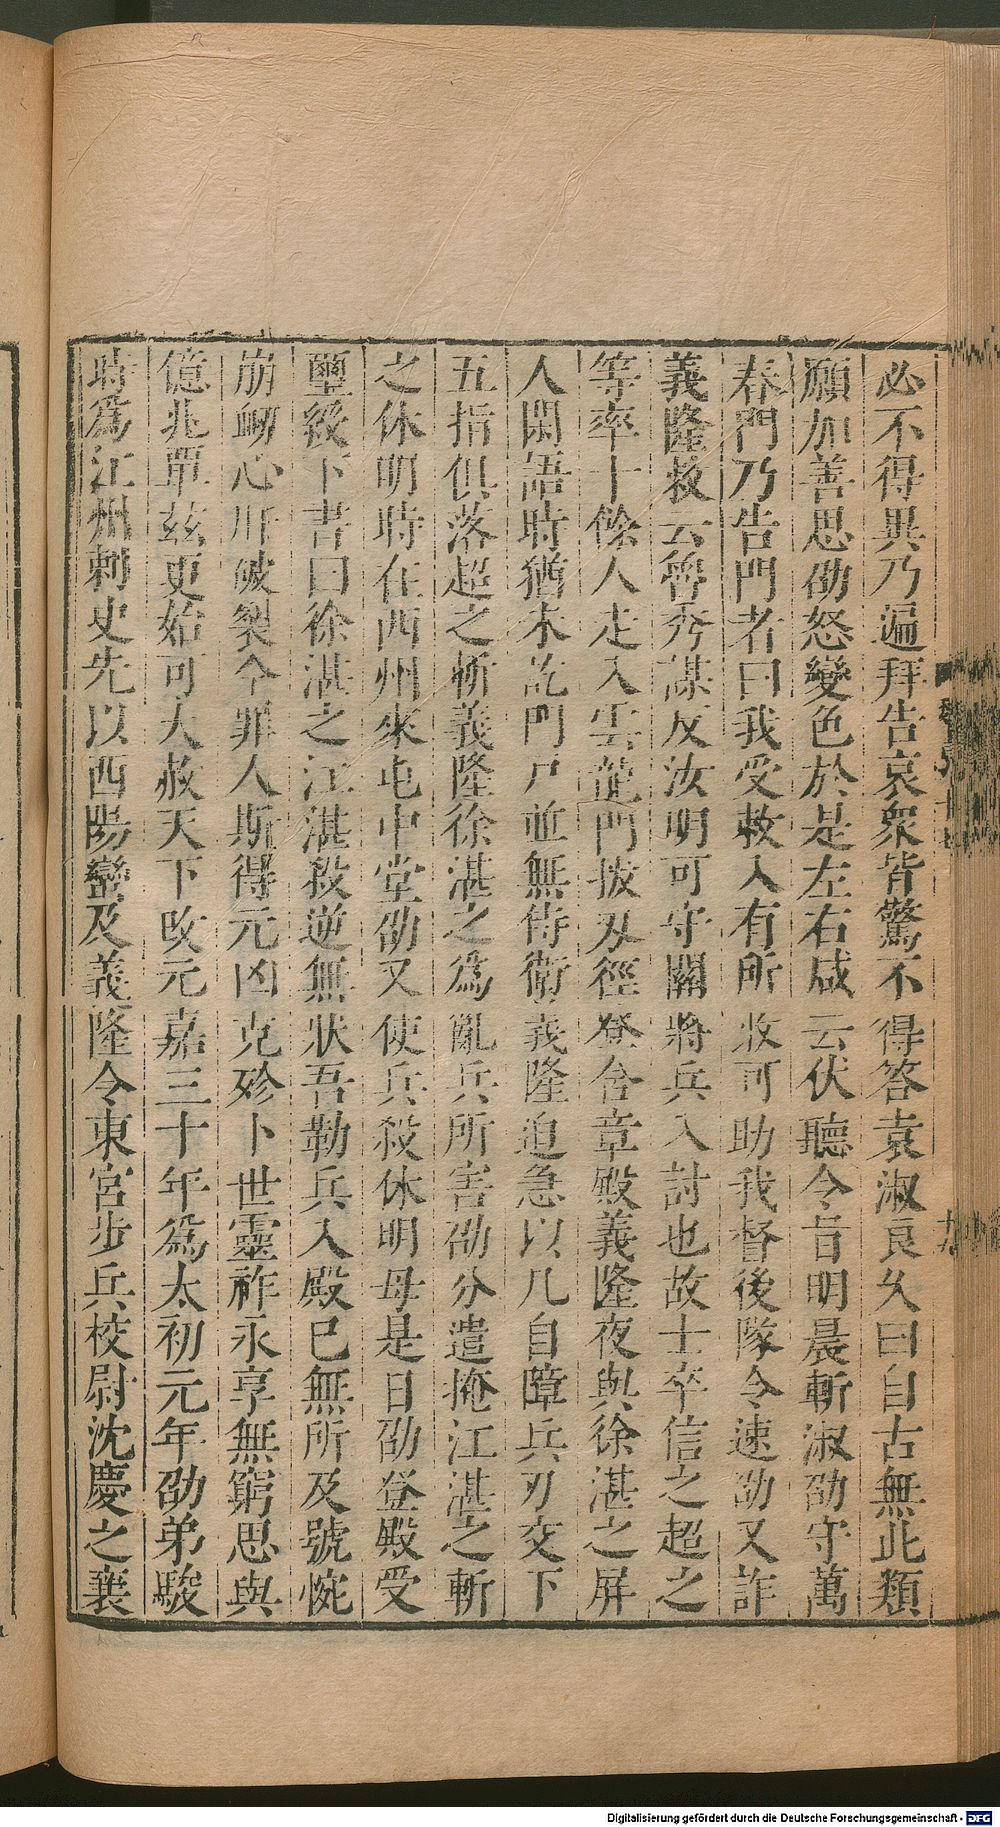 必不得異乃遍拜告哀衆皆驚不得答袁淑良久曰自古無此類
願加善思劭怒變色於是左右咸云伏聽令旨明晨斬淑劭守萬
春門乃告門者曰我受敕入有所收可助我督後隊令速劭又詐
義隆敕云魯秀謀反汝明可守關將兵入討也故士卒信之超之
等率十餘人走入雲龍門拔刃徑登含章殿義隆夜與徐湛之屏
人閑語時猶未訖門戶並無侍衛義隆迫急以几自障兵刃交下
五指俱落超之斬義隆徐湛之為亂兵所害劭分遣掩江湛之斬
之休明時在西州來屯中堂劭又使兵殺休明母是日劭登殿受
璽綬下書曰徐湛之江湛弒逆無狀吾勒兵入殿已無所及號惋
崩衂心肝破裂今罪人斯得元凶克殄卜世靈祚永享無窮思與
億兆覃茲更始可大赦天下改元嘉三十年為太初元年劭弟駿
時為江州刺史先以西陽蠻及義隆令東宮步兵校尉沈慶之襄
十九
Digitalisierung gefördert durch die Deutsche Forschungsgemeinschaft - DFG